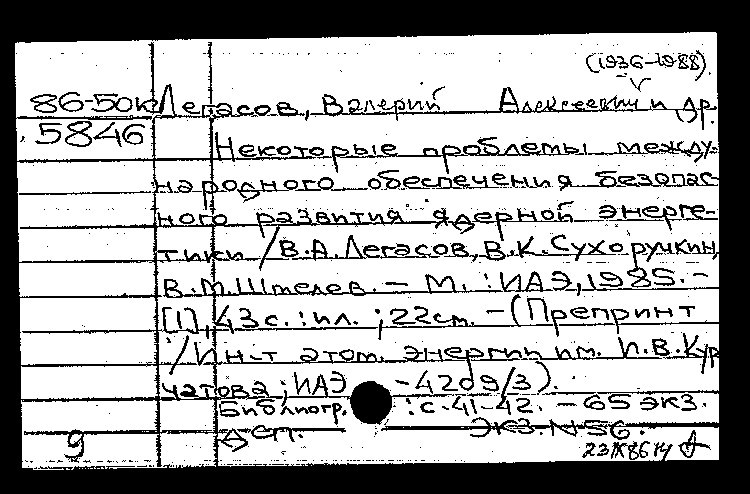 (1936-1988)
86-50к Легасов, Валерий Алексеевич и др.
5846
Некоторые проблемы между-
народного обеспечения безопас-
ного развития ядерной энерге-
тики / В.А. Легасов, В.К. Сухоручкин,
В.М. Шмелев. - М. : ИАЭ, 1985. -
[1], 43 с. : ил. ; 22 см. - (Препринт
/ Ин-т атом. энергии им. И.В. Кур
чатова ; ИАЭ -4209/3).
Библиогр. : с. 41-42. - 65 экз.
ДСП. ЭКЗ. N 56.
9